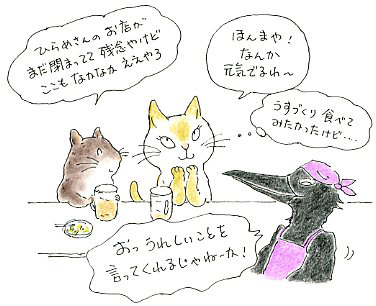 ひらめさんの お店が
まだ閉まってて 残念やけど
ここも なかなか ええやろ
ほんまや！
なんか
元気でるわ〜
うすづくり 食べて
みたかったけど….
おっ うれしいことを
言ってくれるじゃねーか！